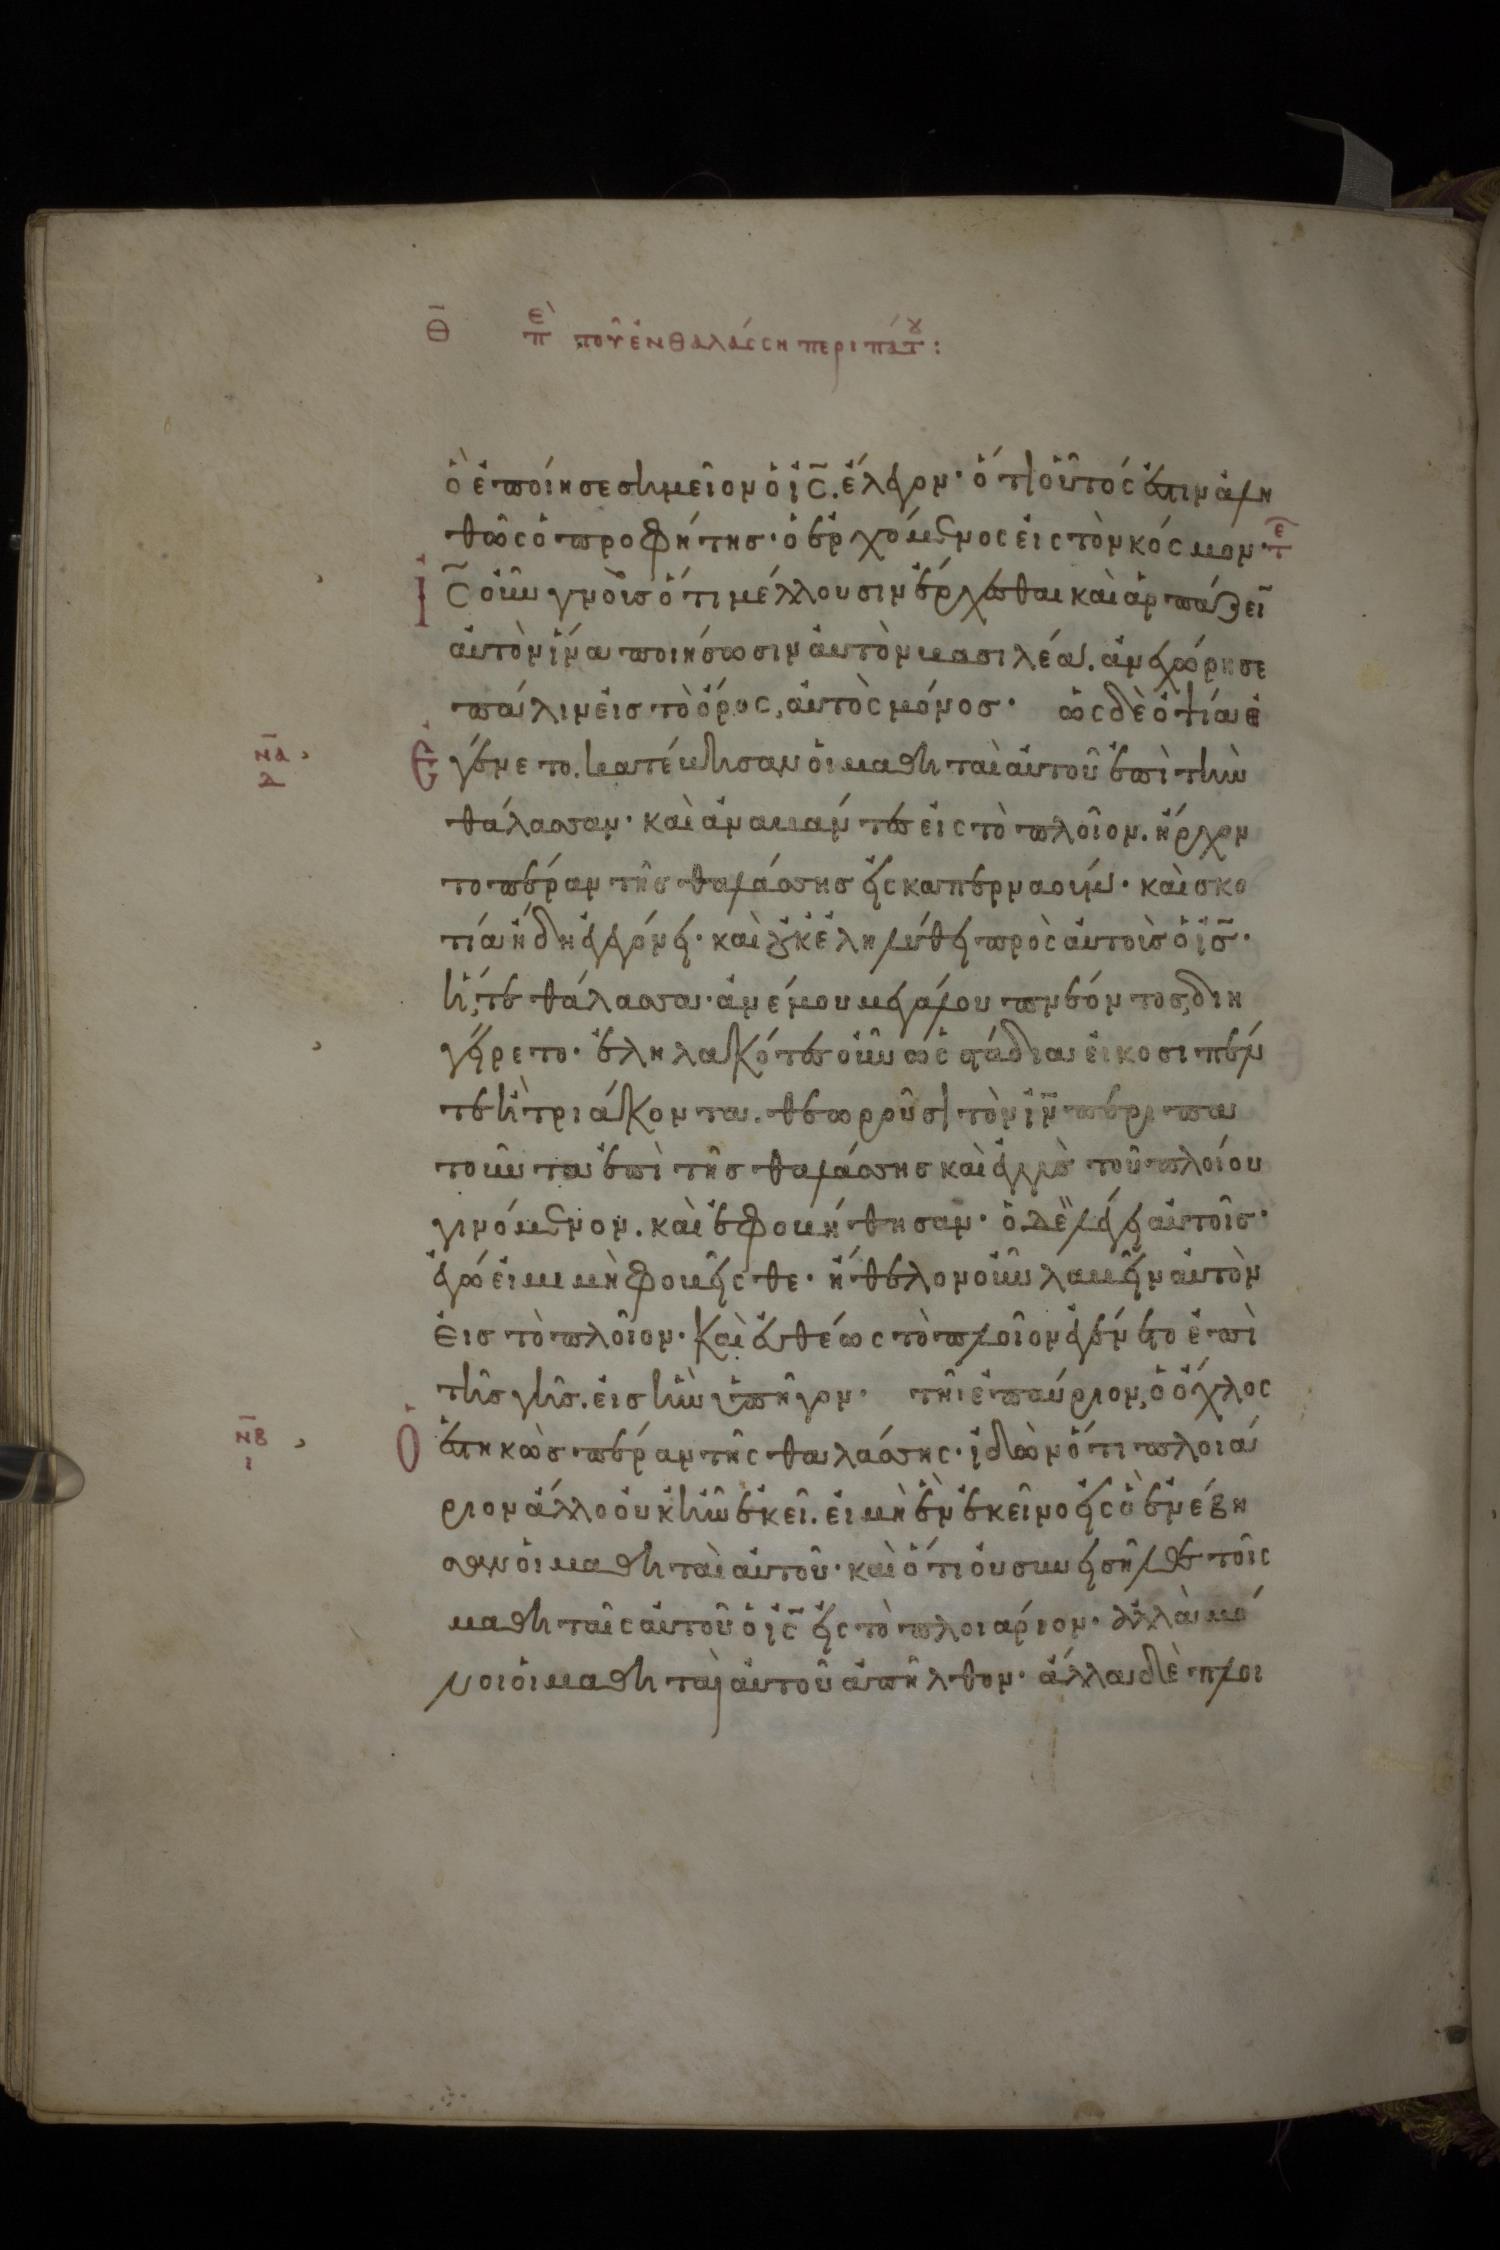 θ̅ πὲ τοῦ ἐν θαλάσση περιπάτου:
ὃ ἐποίησε σημεῖον ὁ ι̅ς̅. ἔλεγον· ὅτι οὗτός ἐστιν ἀλη
θῶς ὁ προφήτης· ὁ ἐρχόμενος εἰς τὸν κόσμον· τε̅
Ι̅ς̅ οὖν γνοὺς ὅτι μέλλουσιν ἔρχεσθαι καὶ ἁρπάζειν
αὐτὸν ἵνα ποιήσωσιν αὐτὸν βασιλέα. ἀνεχώρησε
πάλιν εἰς τὸ ὄρος, αὐτὸς μόνος· ὡς δὲ ὀψία ἐ
ν̅α̅ δ
γένετο. κατέβησαν οἱ μαθηταὶ αὐτοῦ ἐπὶ τὴν
θάλασσαν· καὶ ἀναβάντες εἰς τὸ πλοῖον. ἤρχον
το πέραν τῆς θαλάσσης εἰς καπερναούμ· καὶ σκο
τία ἤδη ἐγεγόνει· καὶ οὐκ ἐληλύθει πρὸς αὐτοὺς ὁ ι̅ς̅·
ἥ, τε θάλασσα· ἀνέμου μεγάλου πνέοντος, διη
γείρετο· ἐληλακότες οὖν ὡς στάδια εἰκοσιπέν
τε ἢ τριάκοντα. θεωροῦσι τὸν ι̅ν̅ περιπα
τοῦντα ἐπὶ τῆς θαλάσσης καὶ ἐγγὺς τοῦ πλοίου
γινόμενον. καὶ ἐφοβήθησαν· ὁ δὲ λέγει αὐτοῖς·
ἐγώ εἰμι μὴ φοβεῖσθε· ἤθελον οὖν λαβεῖν αὐτὸν
εἰς τὸ πλοῖον· καὶ εὐθέως τὸ πλοῖον ἐγένετο ἐπὶ
τῆς γῆς. εἰς ἣν ὑπῆγον· τῆι ἐπαύριον, ὁ ὄχλος
ν̅β̅ ι
ὁ ἑστηκὼς πέραν τῆς θαλάσσης· ἰδὼν ὅτι πλοιά
ριον ἄλλο οὐκ ἦν ἐκεῖ. εἰ μὴ ἓν ἐκεῖνο εἰς ὃ ἐνέβη
σαν οἱ μαθηταὶ αὐτοῦ· καὶ ὅτι οὐ συνεισῆλθε τοῖς
μαθηταῖς αὐτοῦ ὁ ι̅ς̅ εἰς τὸ πλοιάριον· ἀλλὰ μό
νοι οἱ μαθηταὶ αὐτοῦ ἀπῆλθον· ἄλλα δὲ πλοι